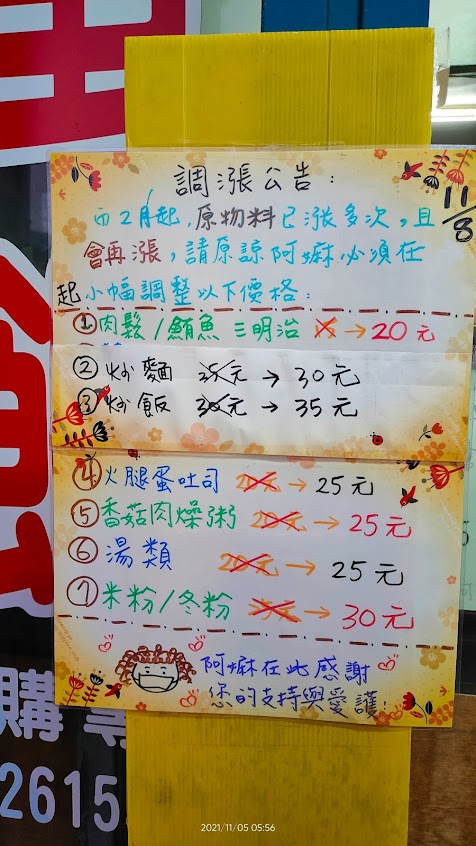 調漲公告:
11/8
而2月起,原物料已漲多次,且
會再漲,請原諒阿嬤必須在
起小幅調整以下價格:
①肉鬆/鮪魚 三明治 → 20元
②炒麵 25元 → 30元
③炒飯 30元 → 35元
④火腿蛋吐司 20元 → 25元
⑤香菇肉燥粥 20元 → 25元
⑥湯類 20元 → 25元
⑦米粉/冬粉 → 30元
阿嬤在此感謝
您的支持與愛護!
購
2615
2021/11/05 05:56